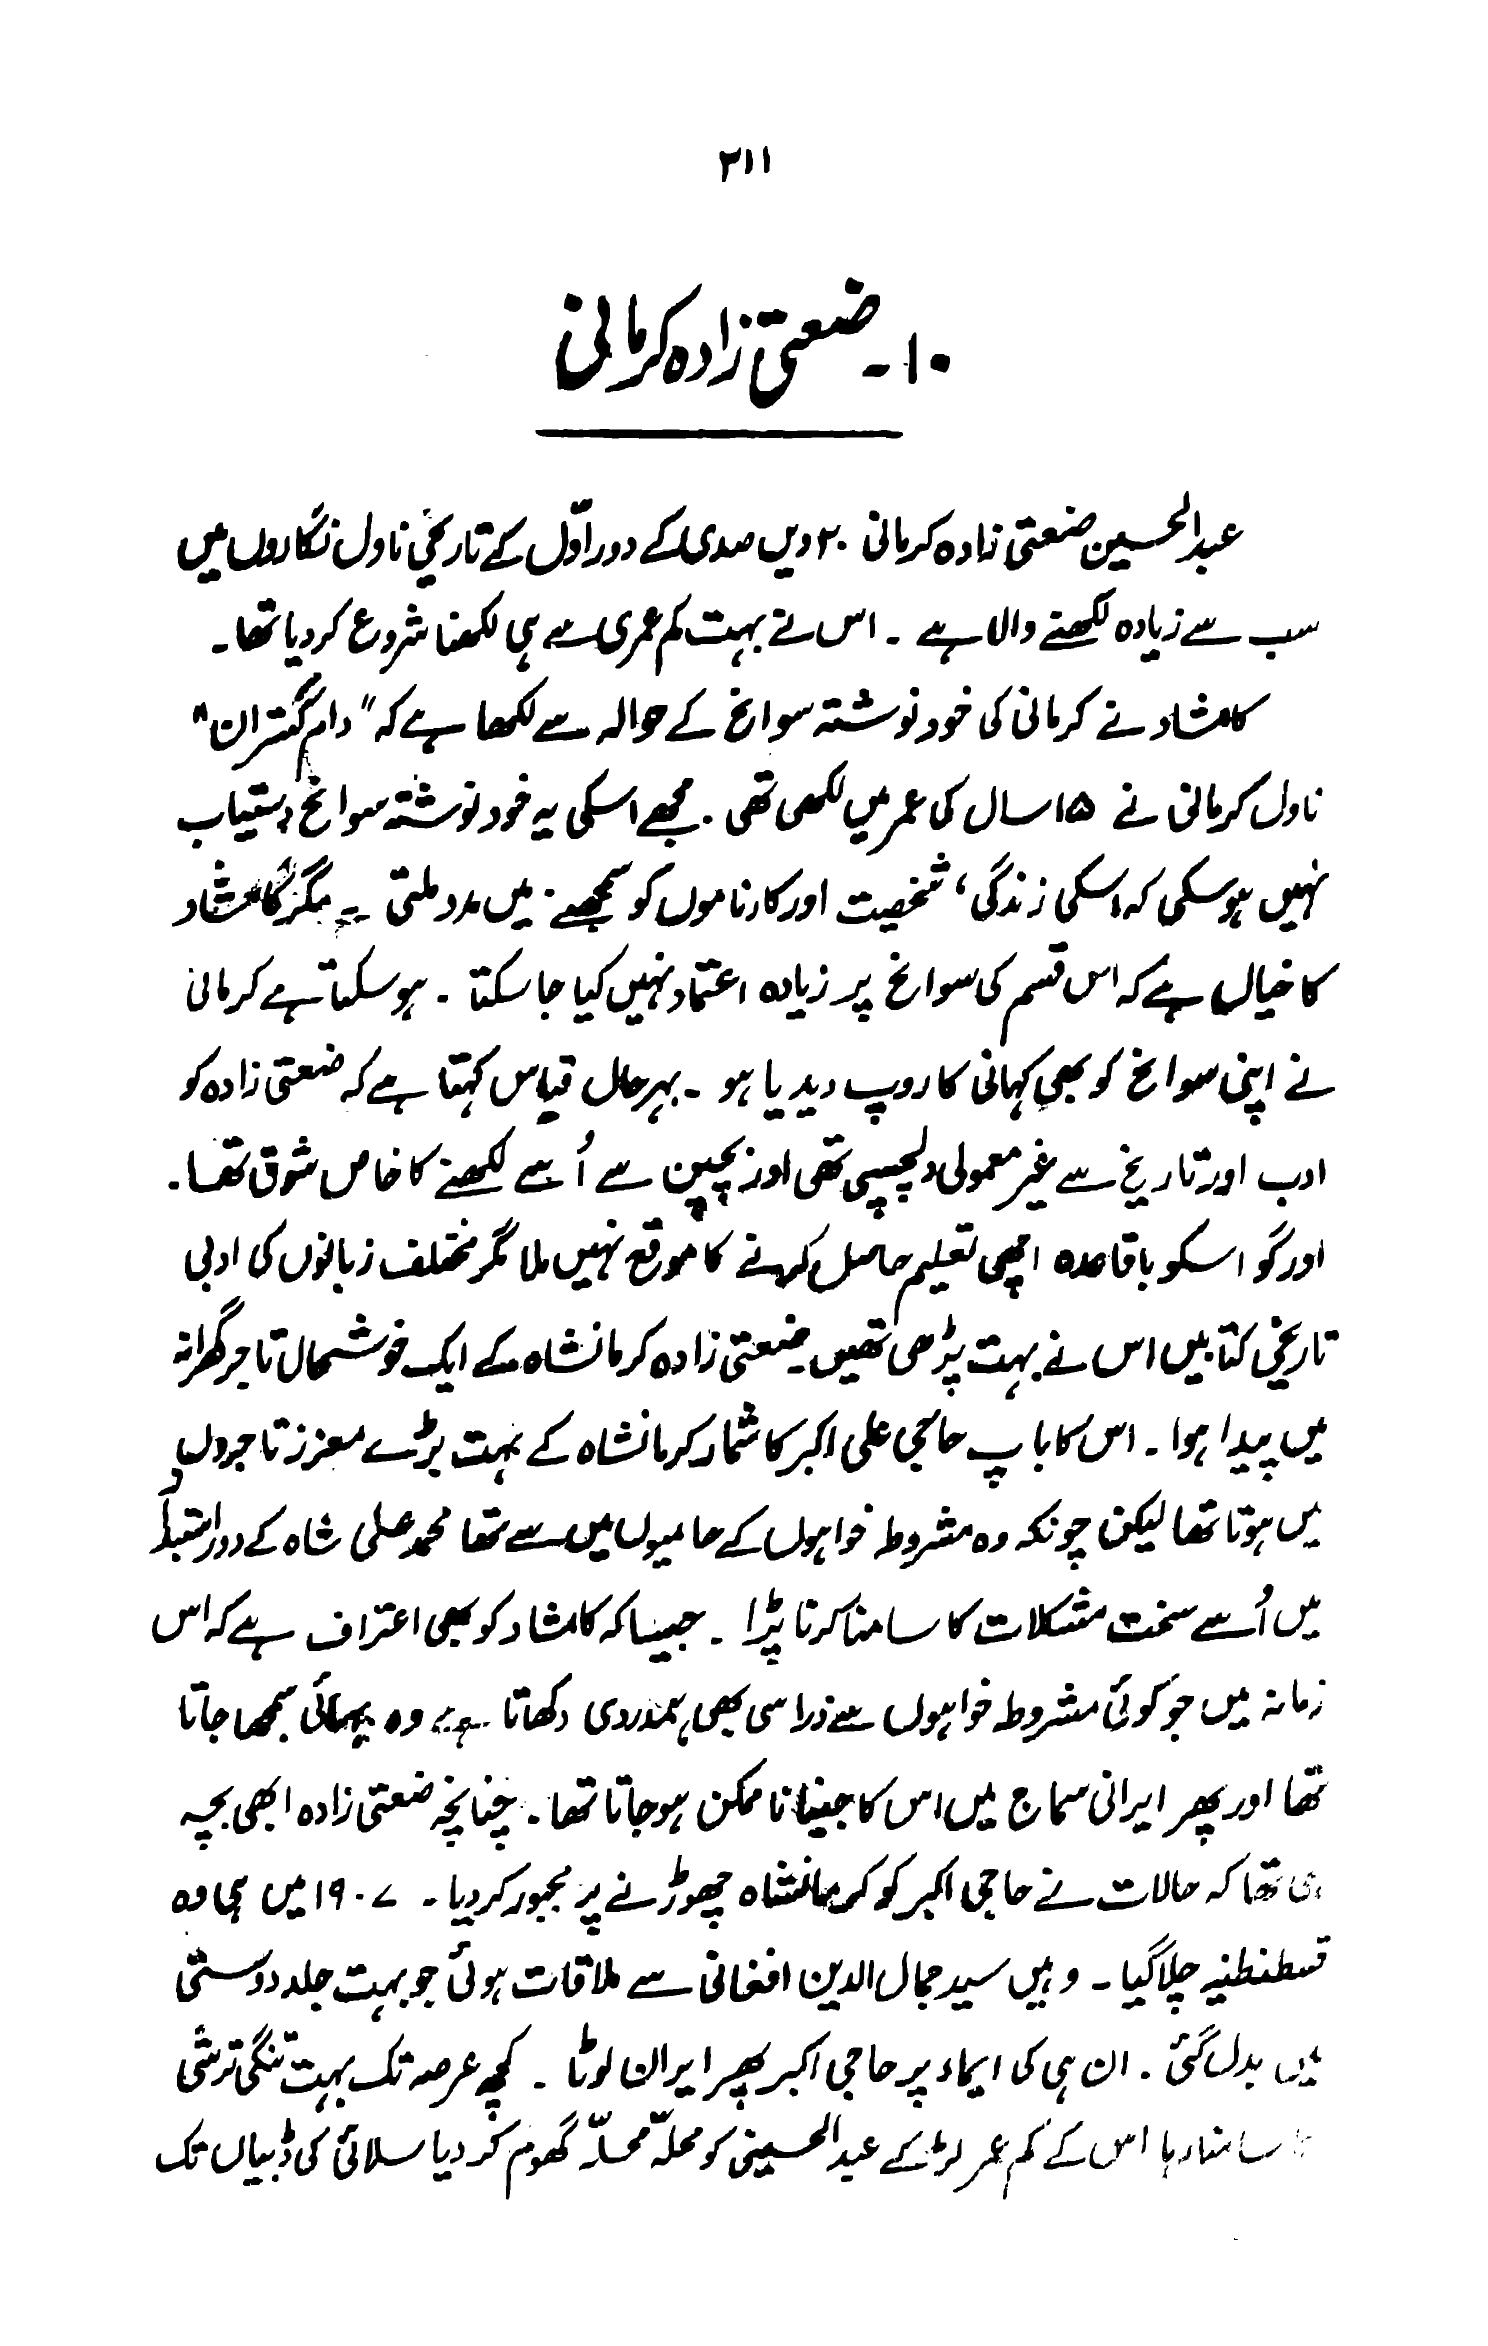 ۲۱۱
۱۰۔ ضعتی زادہ کرمانی
عبدالحسین ضعتی زادہ کرمانی ۲۰ویں صدی کے دور اوّل کے تاریخی ناول نگاروں میں
سب سے زیادہ لکھنے والا ہے ۔ اس نے بہت کم عمری سے ہی لکھنا شروع کردیا تھا ۔
کامشاد نے کرمانی کی خود نوشتہ سوانح کے حوالہ سے لکھا ہے کہ "دام گستران"
ناول کرمانی نے ۱۵ سال کی عمر میں لکھی تھی ۔ مجھے اسکی یہ خود نوشتہ سوانح دستیاب
نہیں ہوسکی کہ اسکی زندگی، شخصیت اور کارناموں کو سمجھنے میں مدد ملتی ۔ مگر کامشاد
کا خیال ہے کہ اس قسم کی سوانح پر زیادہ اعتماد نہیں کیا جاسکتا ۔ ہوسکتا ہے کرمانی
نے اپنی سوانح کو بھی کہانی کا روپ دیدیا ہو ۔ بہرحال قیاس کہتا ہے کہ ضعتی زادہ کو
ادب اور تاریخ سے غیر معمولی دلچسپی تھی اور بچپن سے اُسے لکھنے کا خاص شوق تھا ۔
اور گو اسکو باقاعدہ اچھی تعلیم حاصل کرنے کا موقع نہیں ملا مگر مختلف زبانوں کی ادبی
تاریخی کتابیں اس نے بہت پڑھی تھیں ۔ ضعتی زادہ کرمانشاہ کے ایک خوشحال تاجر گھرانہ
میں پیدا ہوا ۔ اس کا باپ حاجی علی اکبر کا شمار کرمانشاہ کے بہت بڑے معزز تاجروں
میں ہوتا تھا لیکن چونکہ وہ مشروطہ خواہوں کے حامیوں میں سے تھا محمد علی شاہ کے دور استبداد
میں اُسے سخت مشکلات کا سامنا کرنا پڑا ۔ جیسا کہ کامشاد کو بھی اعتراف ہے کہ اس
زمانہ میں جو کوئی مشروطہ خواہوں سے ذرا سی بھی ہمدردی دکھاتا ہے وہ بہائی سمجھا جاتا
تھا اور پھر ایرانی سماج میں اس کا جینا ناممکن ہوجاتا تھا ۔ چنانچہ ضعتی زادہ ابھی بچہ
ہی تھا کہ حالات نے حاجی اکبر کو کرمانشاہ چھوڑنے پر مجبور کردیا ۔ ۱۹۰۷ میں ہی وہ
قسطنطنیہ چلا گیا ۔ وہیں سید جمال الدین افغانی سے ملاقات ہوئی جو بہت جلد دوستی
میں بدل گئی ۔ ان ہی کی ایماء پر حاجی اکبر پھر ایران لوٹا ۔ کچھ عرصہ تک بہت تنگی ترشی
کا سامنا رہا اس کے کم عمر لڑکے عبدالحسینی کو محلہّ محلہّ گھوم کر دیا سلائی کی ڈبیاں تک